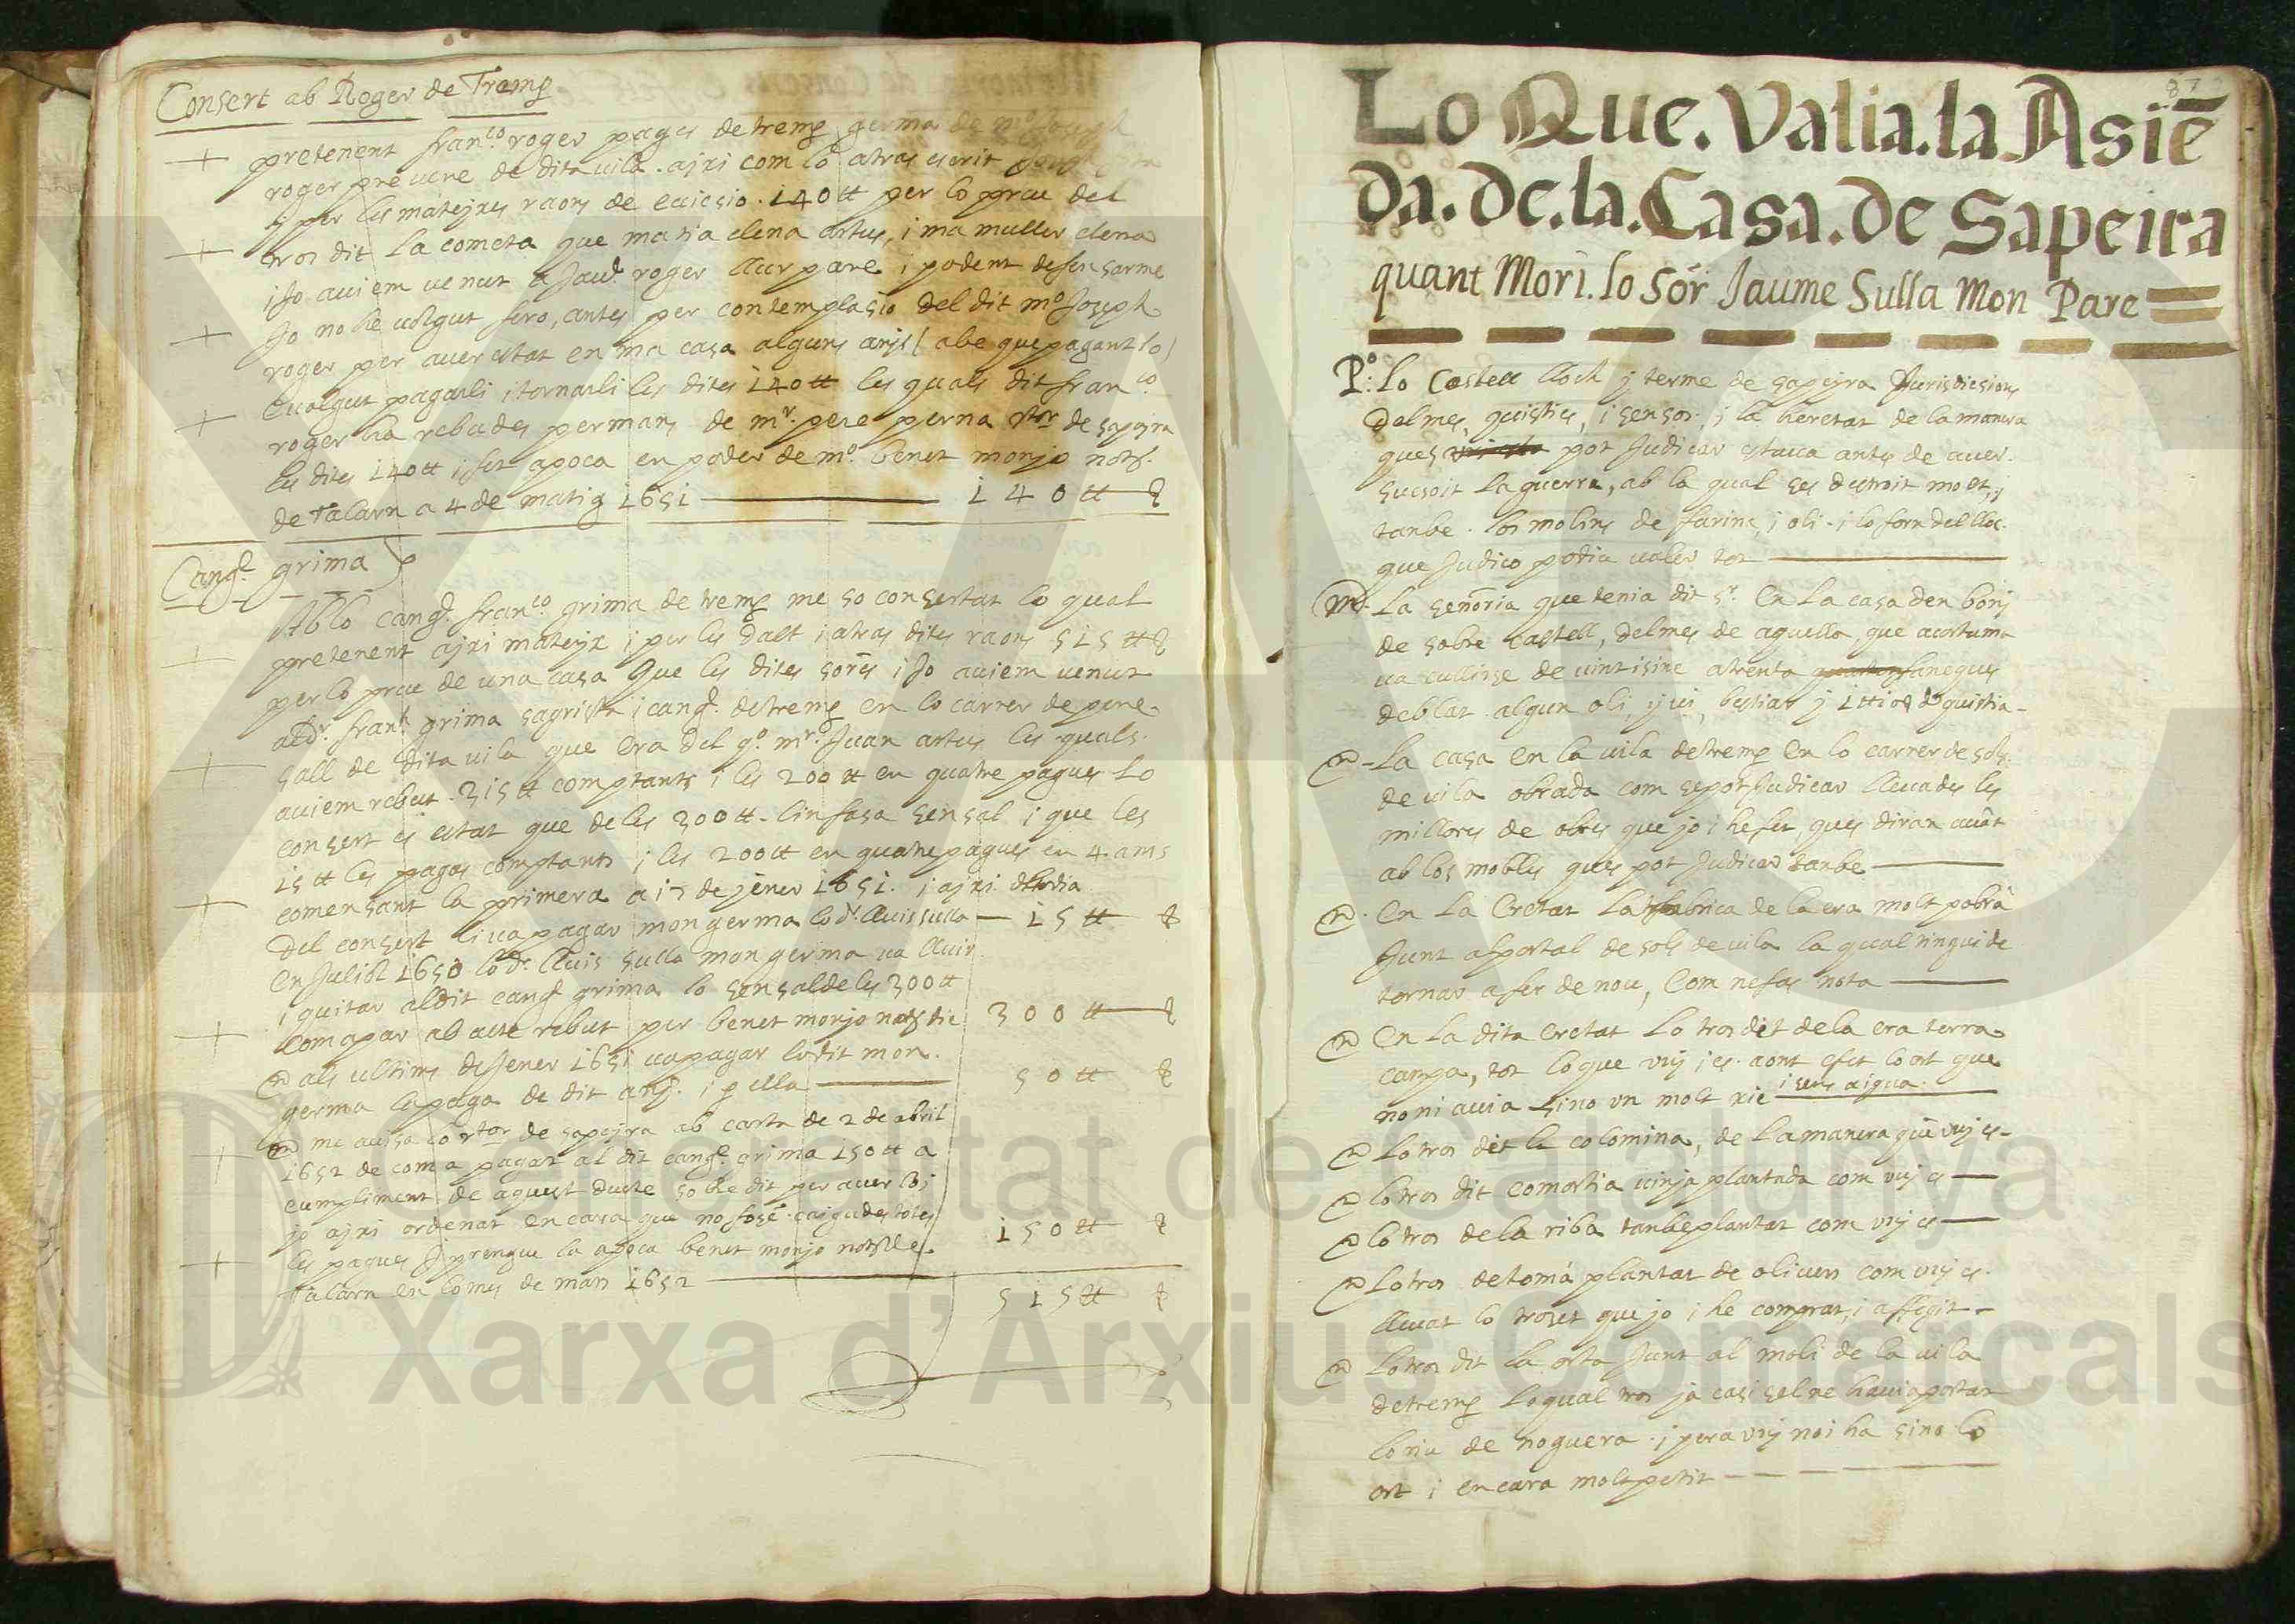 Consert ab Roger de Tremp
pretenent fran.co roger pages de tremp germa de m.o Joseph
roger prevere de dita vila . axi com lo atras escrit
i per les mateyxes raons de eviccio . 140 tt per lo preu del
tros dit la cometa que maria elena artus, i ma muller elena
i Jo aviem venut a Jaud. roger llur pare i podent defensarme
Jo no he volgut fero, antes per contemplasio del dit m.o Joseph
roger per aver estat en ma casa alguns anys ( abe que pagant lo )
e volgut pagarli i tornarli les dites 140 tt les quals dit fran.co
roger ha rebudes per mans de m.r pere perna r.tor de sapeyra
les dites 140 tt i fet apoca en poder de m.o benet monjo not.
de talarn a 4 de matig 1651 140 tt
Cang.e grima
Ab lo cang.e fran.co grima de tremp me so consertat lo qual
pretenent axi mateyx i per les dalt i atras dites raons 515 tt
per lo preu de una casa Que les dites sores i Jo aviem venut
al d.r fran.ch grima sagrista i cang.e de tremp en lo carrer de pene-
sall de dita vila que era del q.o m.r Juan artus les quals
aviem rebut . 315 tt comptants i les 200 tt en quatre pagues Lo
consert es estat que de les 300 tt . linfasa sensal i que les
15 tt les pagas comptants i les 200 tt en quatre pagues en 4 . anis
comensant la primera a 17 de jener 1651 . i axi dit dia
del consert li va pagar mon germa lo d.r lluis sulla 15 tt
En Juliol 1650 lo d.r lluis sulla mon germa va lluir
i quitar al dit cang.e grima lo sensal de les 300 tt
com apar ab acte rebut per benet monjo not. die 300 tt
als ultims de Jener 1651 va pagar lo dit mon
germa la paga de dit anj . i p ella 50 tt
me avisa lo r.tor de sapeyra ab carta de 2 de abril
1652 de com a pagat al dit cang.e grima 150 tt a
cumpliment de aquest deute so he dit per aver loi
jo axi ordenat encara que no fosẽ caigudes totes
les pagues i prengue la apoca benet monjo not. de
talarn en lo mes de mars 1652 150 tt
515 tt
87
Lo Que . Valia . la Asiẽ
da . de . la . Casa . de Sapeira
quant Mori . lo Sor Jaume Sulla Mon Pare
P.o: Lo Castell lloch y terme de sapeyra Jurisdicsions
delmes, quisties, i sensos . i la heretat de la manera
ques pot Judicar estava antes de aver
sucsoit la guerra, ab la qual ses destroit molt, i
tanbe . los molins de farina, i oli . i lo forn del lloc
que Judico podia valer tot
La señoria que tenia dit s.r en la casa den bonj
de sobre castell, delmes de aquella, que acostuma
va cullirse de vintisinc a trenta fanegues
de blat . algun oli, y vi, bestiar y 1 tt 10 de quistia
La casa en la vila de tremp en lo carrer de sols
de vila obrada com se pot Judicar llevades les
millores de obres que jo i he fet, ques diran avãt
ab los mobles ques pot Judicar tanbe
En la Eretat La fabrica de la era molt pobra
Junt al portal de sols de vila la qual tingui de
tornar a fer de nou, Com ne fas nota
En la dita Eretat Lo tros dit de la era terra
campa, tot lo que vuy i es . aont e fet lo ort que
no ni avia sino un molt xic i sens aigua
Lo tros dit la colomina, de la manera que vuy es
Lo tros dit comortia vinya plantada com vuy es
Lo tros de la riba tanbe plantat com vuy es
Lo tros de toma plantat de olivers com vuy es
llevat lo troset que jo i he comprat, i affegit
Lo tros dit la orta Junt al moli de la vila
de tremp lo qual tros ja casi sel ne havia portat
lo riu de noguera . i pera vuy noi ha sino lo
ort i encara molt petit
Generalitat de Catalunya
Xarxa d'Arxius Comarcals